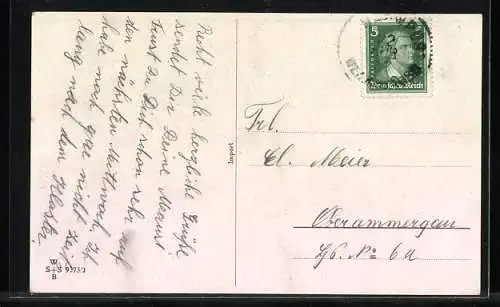 Recht viele herzliche Grüße
sendet Dir Deine Meant
Freust Du Dich schon sehr auf
den nächsten Mittwoch. Ich
habe noch gar nicht Zeit
lang nach dem Kloster.
W.
S+S 9373/3
B
Import
5 5
Deutsches Reich
Frl.
El. Meier
Oberammergau
Hs. No 6a